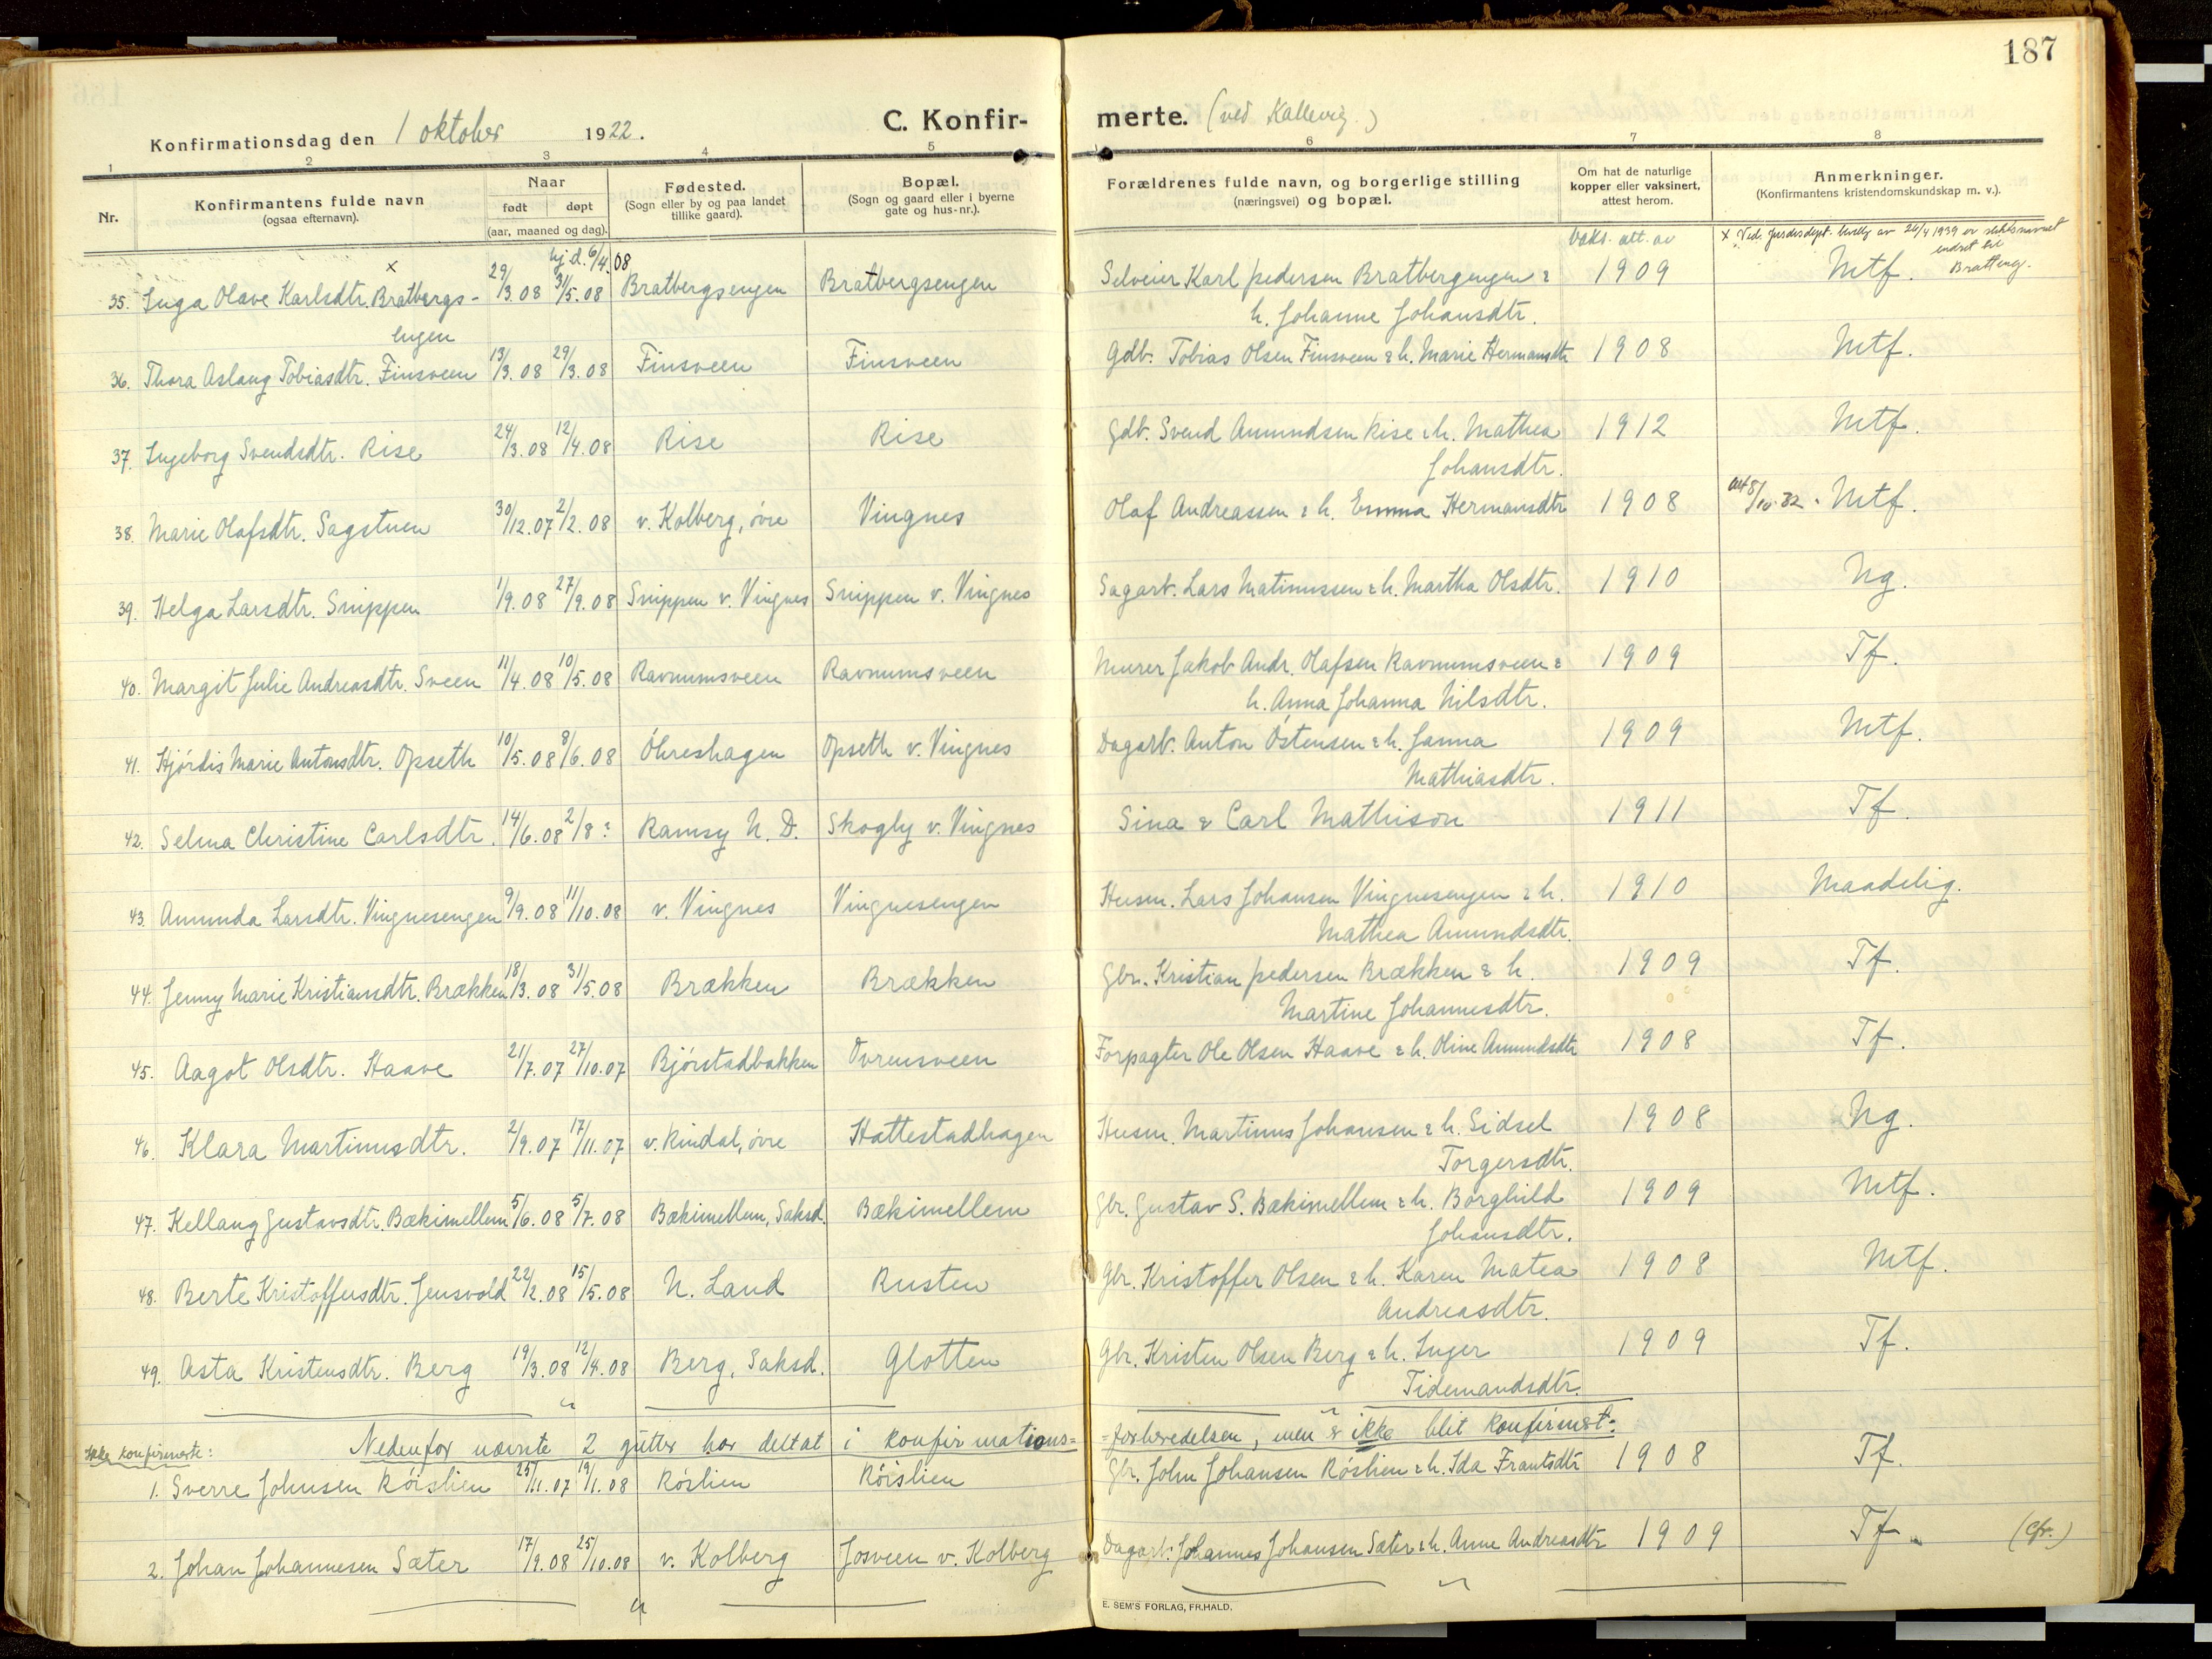 187
Konfirmationsdag den 1 oktober 1922. C. Konfirmerte. (ved Kallevig.)
1 2 3 4 5 6 7 8
Nr.
Konfirmantens fulde navn (ogsaa efternavn).
Naar født døpt (aar, maaned og dag).
Fødested. (Sogn eller by og paa landet tillike gaard).
Bopæl. (Sogn og gaard eller i byerne gate og hus-nr.).
Forældrenes fulde navn, og borgerlige stilling (næringsvei) og bopæl.
Om hat de naturlige kopper eller vaksinert, attest herom.
Anmerkninger. (Konfirmantens kristendomskundskap m. v.).
hj.d. 6/4. 08
Vaks. att. av
x Ved Jusdisdept. bevilg av 26/4 1939 er slektsnavnet endret til Bratteng.
35. Inga Olave Karlsdtr. Bratbergs- x 29/3.08 31/5.08 Bratbergsengen Bratbergsengen Selveier Karl Pedersen Bratbergengen & 1909 Mtf.
engen h. Johanne Johansdtr.
36. Thora Aslaug Tobiasdtr. Finsveen 13/3.08 29/3.08 Finsveen Finsveen Gdb. Tobias Olsen Finsveen & h. Marie Hermansdtr 1908 Mtf.
37. Ingeborg Svendsdtr. Rise 24/3.08 12/4.08 Rise Rise Gdb. Svend Amundsen Rise & h. Mathea 1912 Mtf.
Johansdtr.
38. Marie Olafsdtr. Sagstuen 30/12.07 2/2.08 v. Kolberg, övre Vingnes Olaf Andreassen & h. Emma Hermansdtr 1908 att 8/10.32. Mtf.
39. Helga Larsdtr. Snippen 1/9.08 27/9.08 Snippen v. Vingnes Snippen v. Vingnes Sagarb. Lars Matinussen & h. Martha Olsdtr. 1910 Ng.
40. Margit Julie Andreasdtr. Sveen 11/4.08 10/5.08 Ravnumsveen Ravnumsveen Murer Jakob Andr. Olafsen Ravnumsveen & 1909 Tf.
h. Anna Johanna Nilsdtr.
41. Hjördis Marie Antonsdtr. Opseth 10/5.08 8/6.08 Öhreshagen Opseth v. Vingnes Dagarb. Anton Östensen & h. Janna 1909 Mtf.
Mathiasdtr.
42. Selma Christine Carlsdtr. 14/6.08 2/8? Ramsy N. D. Skogly v. Vingnes Sina & Carl Mathison 1911 Tf.
43. Amunda Larsdtr. Vingnesengen 9/9.08 11/10.08 v. Vingnes Vingnesengen Husm. Lars Johansen Vingnesengen & h. 1910 Maadelig.
Mathea Amundsdtr.
44. Jenny Marie Kristiansdtr. Brækken 18/3.08 31/5.08 Brækken Brækken Gbr. Kristian Pedersen Brækken & h. 1909 Tf.
Martine Johannesdtr.
45. Aagot Olsdtr. Haave 21/7.07 27/10.07 Björstadbakken Ovrensveen Forpagter Ole Olsen Haave & h. Oline Amundsdtr 1908 Tf.
46. Klara Martinusdtr. 2/9.07 17/11.07 v. Rindal, övre Hattestadhagen Husm. Martinus Johansen & h. Sidsel 1908 Ng.
Torgersdtr.
47. Kellaug Gustavsdtr. Bækimellem 5/6.08 5/7.08 Bækimellem, Saksd. Bækimellem Gbr. Gustav S. Bækimellem & h. Borghild 1909 Mtf.
Johansdtr.
48. Berte Kristoffersdtr. Jensvold 22/2.08 15/5.08 N. Land Rusten Gbr. Kristoffer Olsen & h. Karen Matea 1908 Mtf.
Andreasdtr.
49. Asta Kristensdtr. Berg 19/3.08 12/4.08 Berg, Saksd. Glotten Gbr. Kristen Olsen Berg & h. Inger 1909 Tf.
Tidemandsdtr.
Ikke konfirmerte: Nedenfor nævnte 2 gutter har deltat i konfirmations= =forberedelsen, men er ikke blit konfirmert.
1. Sverre Johnsen Röislien 25/11.07 19/1.08 Röslien Röislien Gbr. John Johansen Röslien & h. Ida Frantsdtr 1908 Tf.
2. Johan Johannesen Sæter 17/9.08 25/10.08 v. Kolberg Josveen v. Kolberg Dagarb. Johannes Johansen Sæter & h. Anne Andreasdtr 1909 Tf. (Cfr.)
E. SEM'S FORLAG, FR.HALD.